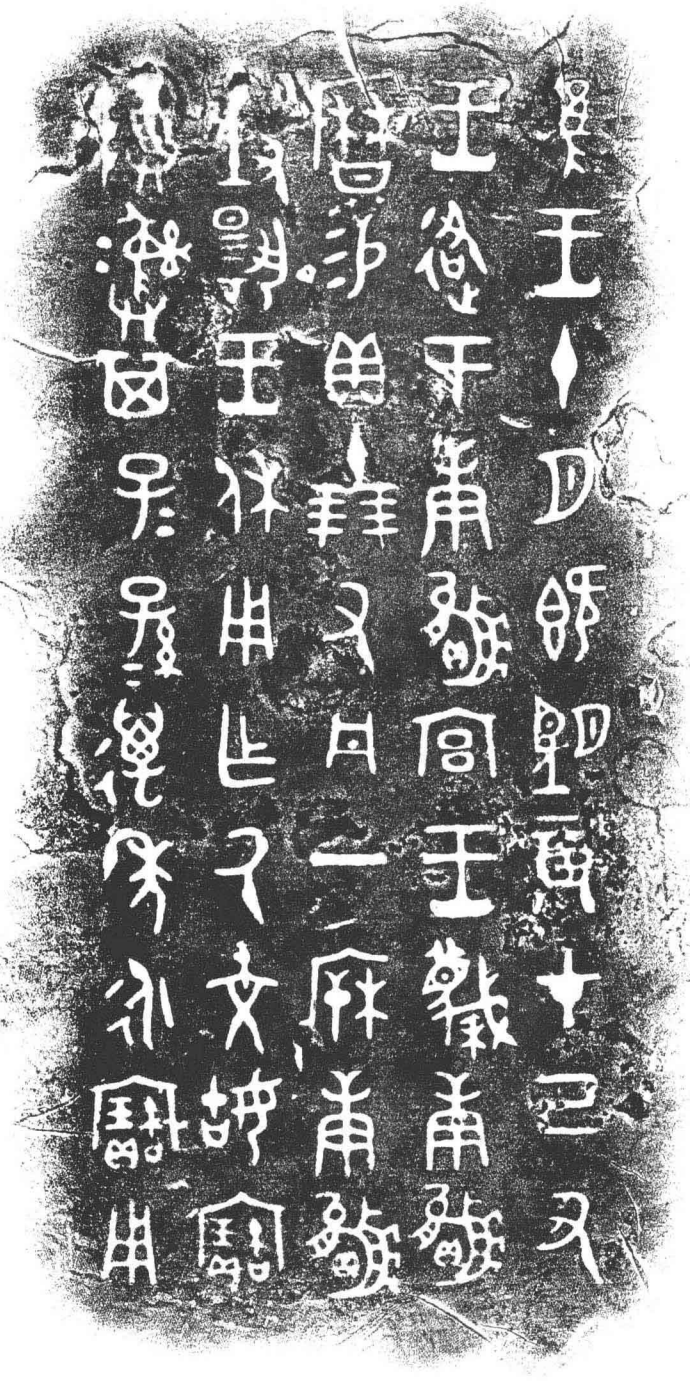 隹王十月既望辰才己丑
王𢓜于庚嬴宮王蔑庚嬴
曆易貝十朋又丹一𣏟庚嬴
對揚王休用乍厥文姑寶
尊彝其子子孫孫萬年永寶用